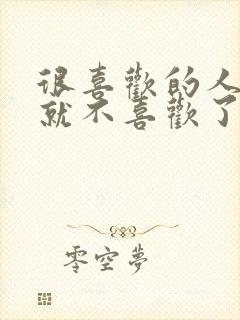 很喜歡的人
就不喜歡了
零空夢